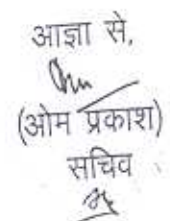 आज्ञा से,
(ओम प्रकाश)
सचिव